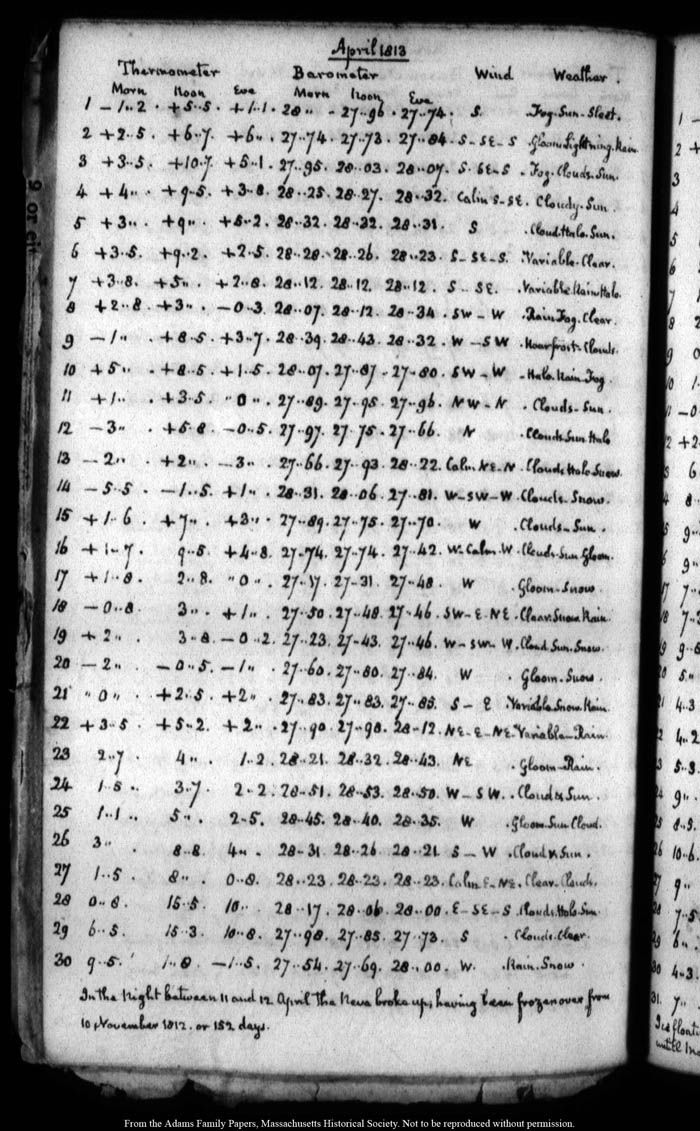 April 1813
Thermometer Barometer Wind Weather.
Morn Noon Eve Morn Noon Eve
1 -1..2 +5..5 +1..1. 28 „ 27..96. 27..74. S. Fog. Sun. Sleet.
2 +2..5 +6..7. +6„. 27..74. 27..73. 27..84. S-SE-S Gloom Lightning. Rain
3 +3..5 +10..7 +5..1. 27..95. 28..03. 28..07. S. SE-S Fog. Clouds. Sun.
4 +4„ +9..5. +3..8. 28..25. 28..27. 28..32. Calm S-SE. Cloudy. Sun.
5 +3„ +9„ +5..2. 28..32. 28..32. 28..31. S Cloud. Halo. Sun.
6 +3..5. +9..2. +2..5. 28..28. 28..26. 28..23. S-SE-S. Variable. Clear.
7 +3..8. +5„. +2..8. 28..12. 28..12. 28..12. S-SE. Variable Rain Halo.
8 +2..8. +3„. -0..3. 28..07. 28..12. 28..34. SW-W Rain Fog. Clear.
9 -1„ +8..5 +3..7. 28..39. 28..43. 28..32. W-SW Hoarfrost. Clouds.
10 +5„ +8..5. +1..5. 28..07. 27..87. 27..80. SW-W Halo. Rain. Fog
11 +1„. +3..5. „0„. 27..89. 27..95. 27..96. NW-N Clouds. Sun.
12 -3„ +5..8. -0..5. 27..97. 27..75. 27..66. N Clouds Sun Halo
13 -2„ +2„. -3„. 27..66. 27..93. 28..22. Calm. NE-N. Clouds Halo Snow.
14 -5..5. -1..5. +1„. 28..31. 28..06. 27..81. W-SW-W Clouds. Snow.
15 +1..6. +7„. +3„. 27..89. 27..75. 27..70. W Clouds. Sun.
16 +1..7. 9..5. +4..8. 27..74. 27..74. 27..42. W-Calm-W. Clouds. Sun. Gloom.
17 +1..8. 2..8. „0„. 27..17. 27..31. 27..48. W Gloom. Snow.
18 -0..8. 3„. +1„. 27..50. 27..48. 27..46. SW-E-NE. Clear. Snow. Rain.
19 +2„. 3..8. -0..2. 27..23. 27..43. 27..46. W-SW-W. Cloud. Sun. Snow.
20 -2„ -0..5. -1„. 27..60. 27..80. 27..84. W Gloom. Snow.
21 „0„ +2..5. +2„. 27..83. 27..83. 27..85. S-E Variable. Snow. Rain.
22 +3..5 +5..2. +2„. 27..90. 27..98. 28..12. NE-E-NE. Variable. Rain.
23 2..7 4„. 1..2. 28..21. 28..32. 28..43. NE Gloom. Rain.
24 1..5„ 3..7. 2..2. 28..51. 28..53. 28..50. W-SW. Cloud & Sun.
25 1..1„ 5„. 2..5. 28..45. 28..40. 28..35. W Gloom. Sun Cloud.
26 3„ 8..8. 4„. 28..31. 28..26 28..21 S-W Cloud & Sun.
27 1..5 8„. 0..8. 28..23. 28..23. 28..23. Calm E-NE. Clear. Clouds.
28 0..8. 15..5. 10„. 28..17. 28..06 28..00. E-SE-S Clouds. Halo. Sun
29 6..5. 15..3. 10..8. 27..98. 27..85. 27..73. S Clouds. Clear.
30 9..5. 1..8. -1..5. 27..54. 27..69. 28..00. W. Rain. Snow.
In the Night between 11 and 12 April the Neva broke up, having been frozen over from
10 November 1812. or 152 days.
From the Adams Family Papers, Massachusetts Historical Society. Not to be reproduced without permission.